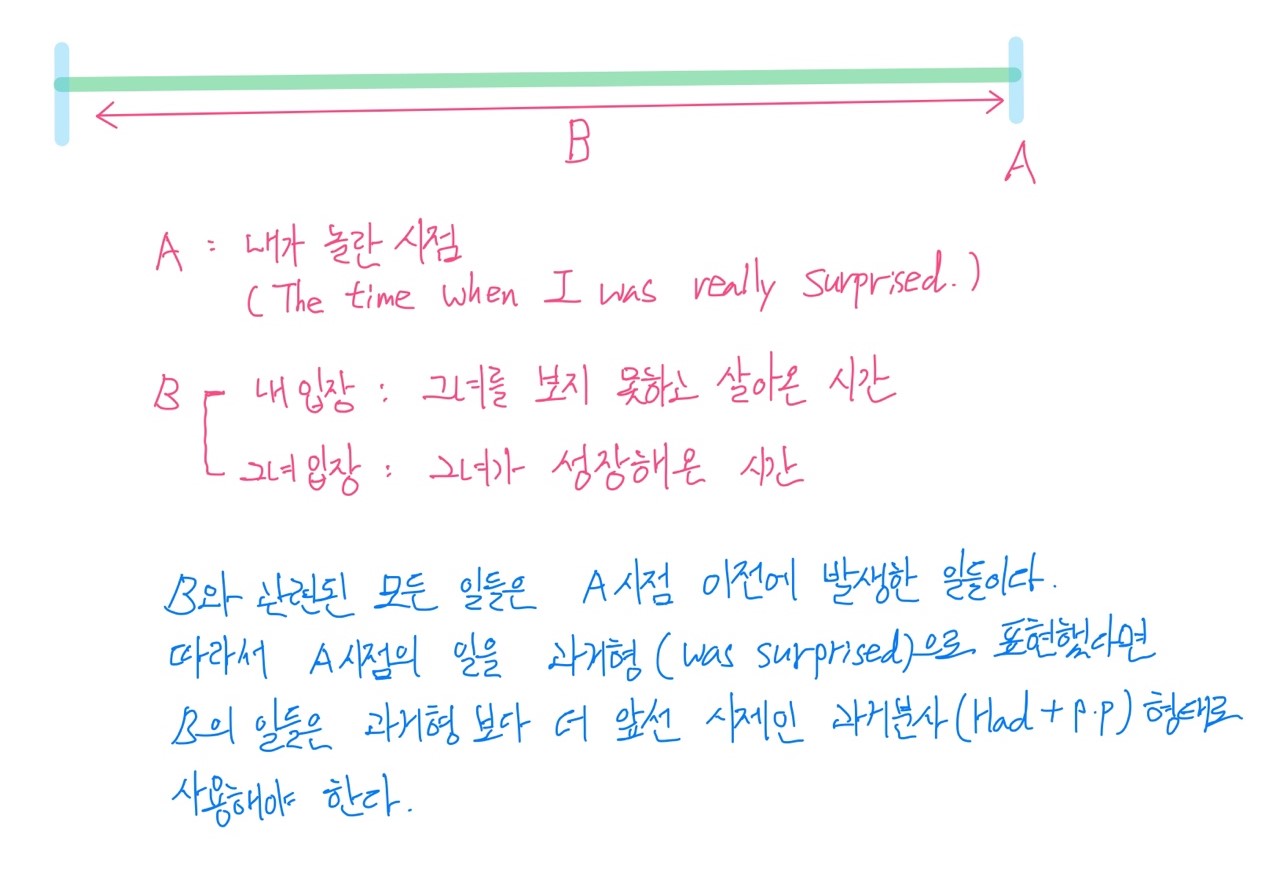 B
A
A : 내가 놀란 시점
(The time when I was really surprised.)
B 내 입장 : 그녀를 보지 못하고 살아온 시간
그녀입장 : 그녀가 성장해온 시간
B와 관련된 모든 일들은 A시점 이전에 발생한 일들이다.
따라서 A시점의 일을 과거형(was surprised)으로 표현했다면
B의 일들은 과거형 보다 더 앞선 시제인 과거분사(Had + p.p) 형태로
사용해야 한다.